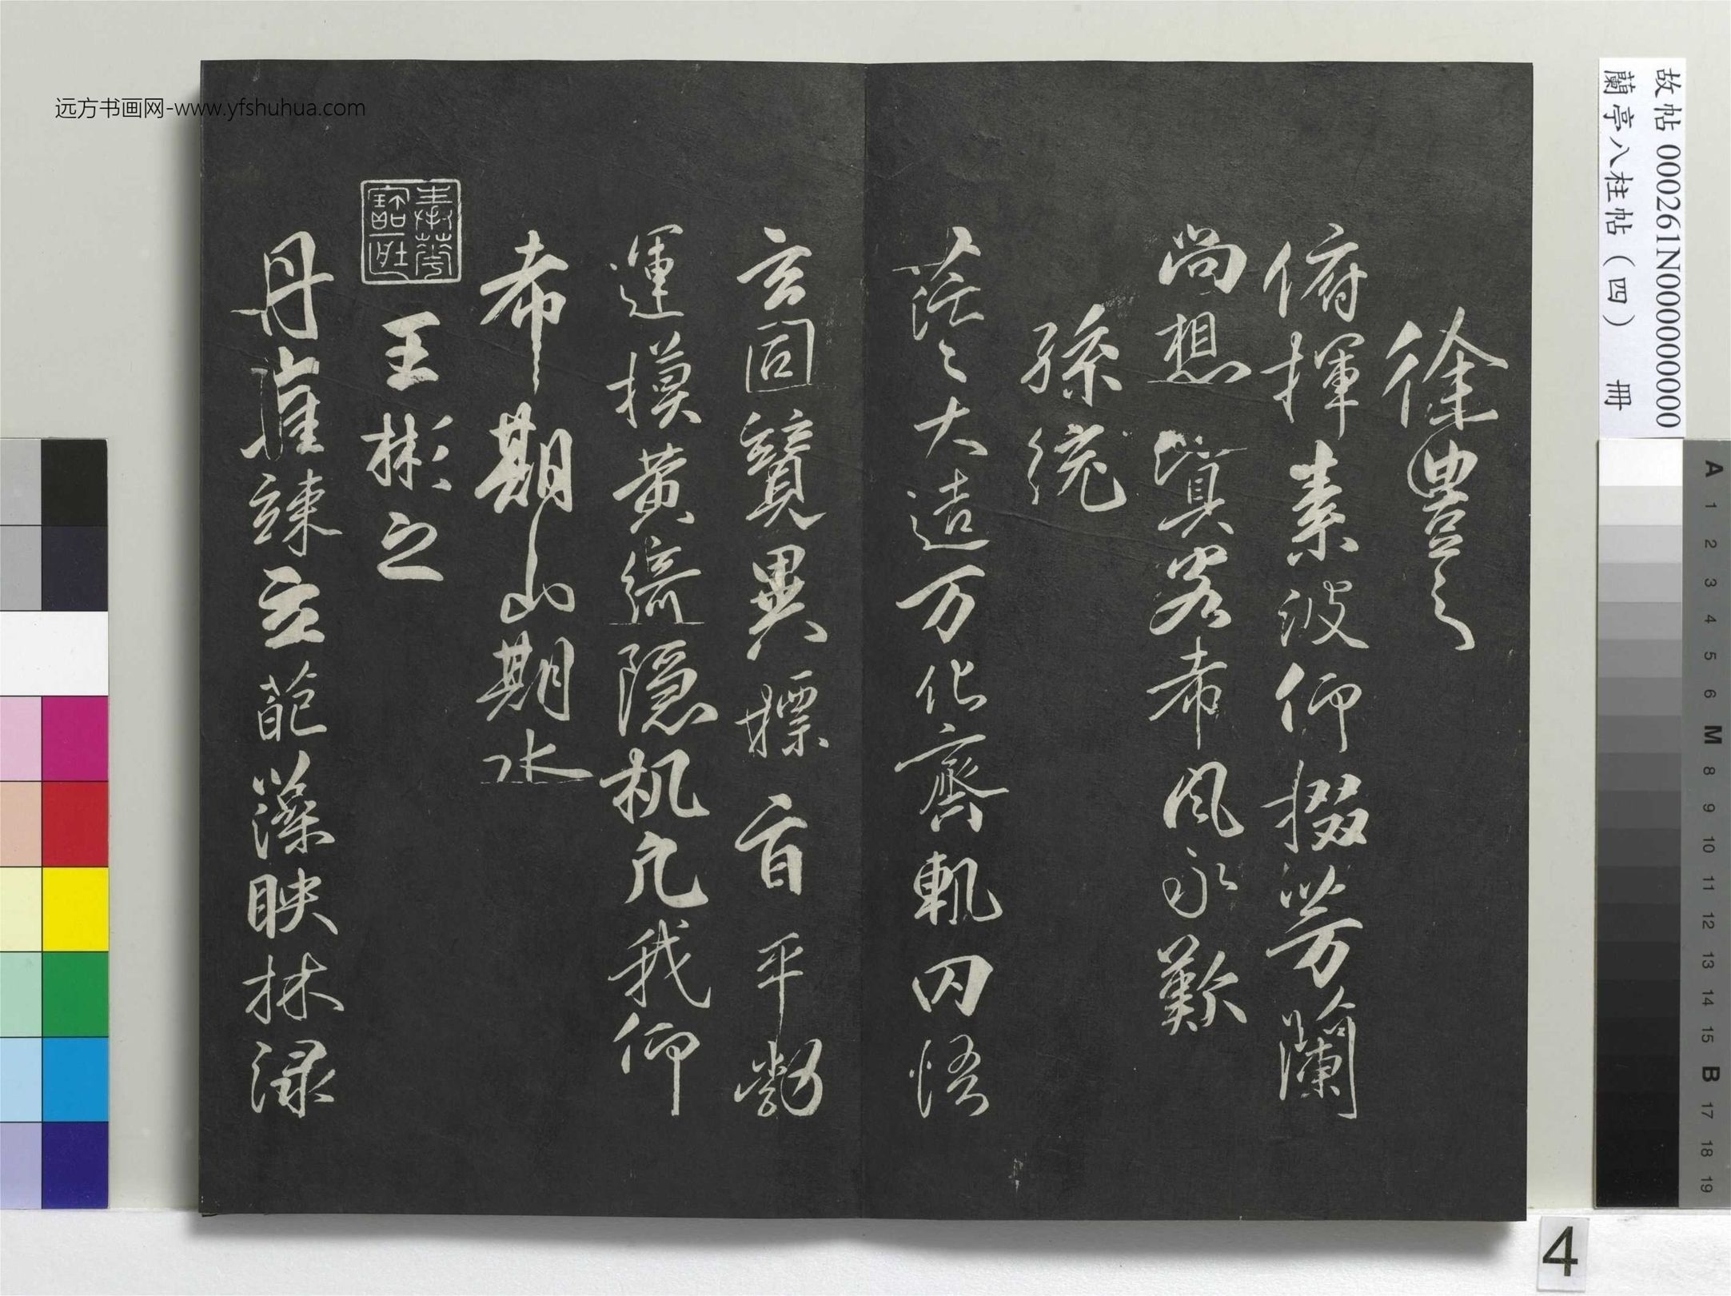 徐豊之
俯揮素波仰掇芳蘭
尚想嘉客希風永歎
孫統
茫〻大造万化齊軌罔悟
玄同競異摽盲平勃
運模黄綺隠机凢我仰
希期山期水
王彬之
丹崖竦立葩藻映林淥
远方书画网-www.yfshuhua.com
故帖 000261N000000000
蘭亭八柱帖（四） 冊
A
1
2
3
4
5
6
M
8
9
10
11
12
13
14
15
B
17
18
19
4